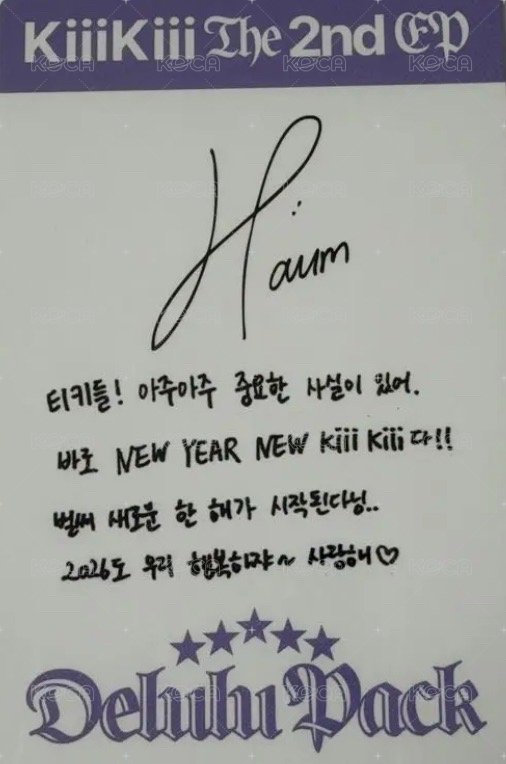 KiiiKiii The 2nd EP
Haum
티키들! 아주아주 중요한 사실이 있어.
바로 NEW YEAR NEW Kiii Kiii 다!!
벌써 새로운 한 해가 시작된다닝..
2026도 우리 행복하쟈~ 사랑해♡
Delulu Pack
KOCA